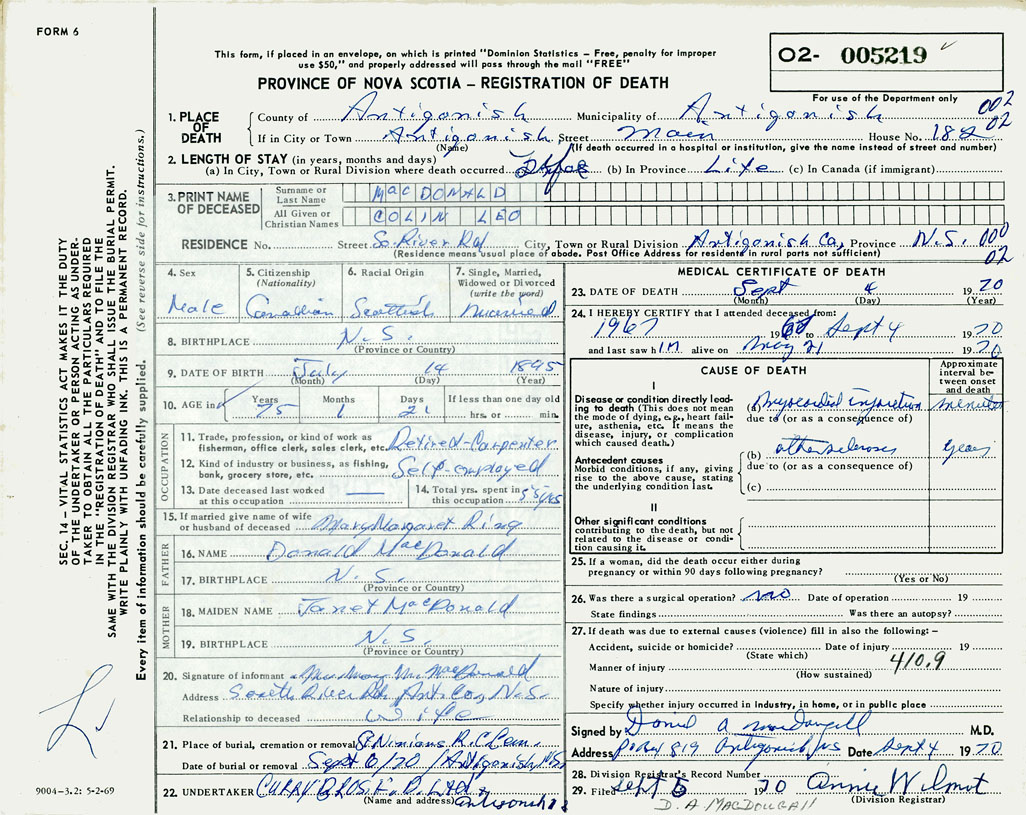 FORM 6
This form, if placed in an envelope, on which is printed "Dominion Statistics – Free, penalty for improper
use $50," and properly addressed will pass through the mail "FREE"
PROVINCE OF NOVA SCOTIA – REGISTRATION OF DEATH
O2- 005219
For use of the Department only
1. PLACE OF DEATH County of Antigonish Municipality of Antigonish 002
If in City or Town Antigonish Street Main House No. 182 02
(Name) (If death occurred in a hospital or institution, give the name instead of street and number)
2. LENGTH OF STAY (in years, months and days)
(a) In City, Town or Rural Division where death occurred (b) In Province Life (c) In Canada (if immigrant)
3. PRINT NAME OF DECEASED Surname or Last Name MacDONALD
All Given or Christian Names COLIN LEO
RESIDENCE No. Street So. River Rd City, Town or Rural Division Antigonish Co, Province N.S. 000
(Residence means usual place of abode. Post Office Address for residents in rural parts not sufficient) 02
4. Sex Male
5. Citizenship (Nationality) Canadian
6. Racial Origin Scottish
7. Single, Married, Widowed or Divorced (write the word) married
8. BIRTHPLACE N.S.
(Province or Country)
9. DATE OF BIRTH July 14 1895
(Month) (Day) (Year)
10. AGE in Years 75 Months 1 Days 21 If less than one day old hrs. or min.
OCCUPATION
11. Trade, profession, or kind of work as fisherman, office clerk, sales clerk, etc. Retired-Carpenter
12. Kind of industry or business, as fishing, bank, grocery store, etc. Self-employed
13. Date deceased last worked at this occupation —
14. Total yrs. spent in this occupation 55 yrs
15. If married give name of wife or husband of deceased Mary Margaret Ring
FATHER
16. NAME Donald MacDonald
17. BIRTHPLACE N.S.
(Province or Country)
MOTHER
18. MAIDEN NAME Janet MacDonald
19. BIRTHPLACE N.S.
(Province or Country)
20. Signature of informant MacDonald
Address South River Rd, Ant. Co, N.S.
Relationship to deceased Wife
21. Place of burial, cremation or removal St Ninians R.C. Cem.
Date of burial or removal Sept 6/70 Antigonish NS
22. UNDERTAKER CURRY BROS. F.D. LTD Antigonish
(Name and address)
MEDICAL CERTIFICATE OF DEATH
23. DATE OF DEATH Sept 4 1970
(Month) (Day) (Year)
24. I HEREBY CERTIFY that I attended deceased from:
1967 19 to Sept 4 1970
and last saw him alive on May 21 1970
CAUSE OF DEATH
Approximate interval between onset and death
I
Disease or condition directly leading to death (This does not mean the mode of dying, e.g., heart failure, asthenia, etc. It means the disease, injury, or complication which caused death.)
(a) myocardial infarction minutes
due to (or as a consequence of)
Antecedent causes
Morbid conditions, if any, giving rise to the above cause, stating the underlying condition last.
(b) atherosclerosis years
due to (or as a consequence of)
(c)
II
Other significant conditions
contributing to the death, but not related to the disease or condition causing it.
25. If a woman, did the death occur either during
pregnancy or within 90 days following pregnancy?
(Yes or No)
26. Was there a surgical operation? no Date of operation 19
State findings Was there an autopsy?
27. If death was due to external causes (violence) fill in also the following: –
Accident, suicide or homicide? Date of injury 19
(State which) 410.9
Manner of injury
(How sustained)
Nature of injury
Specify whether injury occurred in industry, in home, or in public place
Signed by Daniel a macdougall M.D.
Address PO Box 819 Antigonish NS Date Sept 4 1970
28. Division Registrar's Record Number
29. Filed Sept 5 1970 Annie Wilmot
(Division Registrar)
D. A MACDOUGALL
SEC. 14 – VITAL STATISTICS ACT MAKES IT THE DUTY
OF THE UNDERTAKER OR PERSON ACTING AS UNDER-
TAKER TO OBTAIN ALL THE PARTICULARS REQUIRED
IN THE "REGISTRATION OF DEATH" AND TO FILE THE
SAME WITH THE DIVISION REGISTRAR WHO SHALL ISSUE THE BURIAL PERMIT.
WRITE PLAINLY WITH UNFADING INK. THIS IS A PERMANENT RECORD.
Every item of information should be carefully supplied. (See reverse side for instructions.)
9004-3.2: 5-2-69